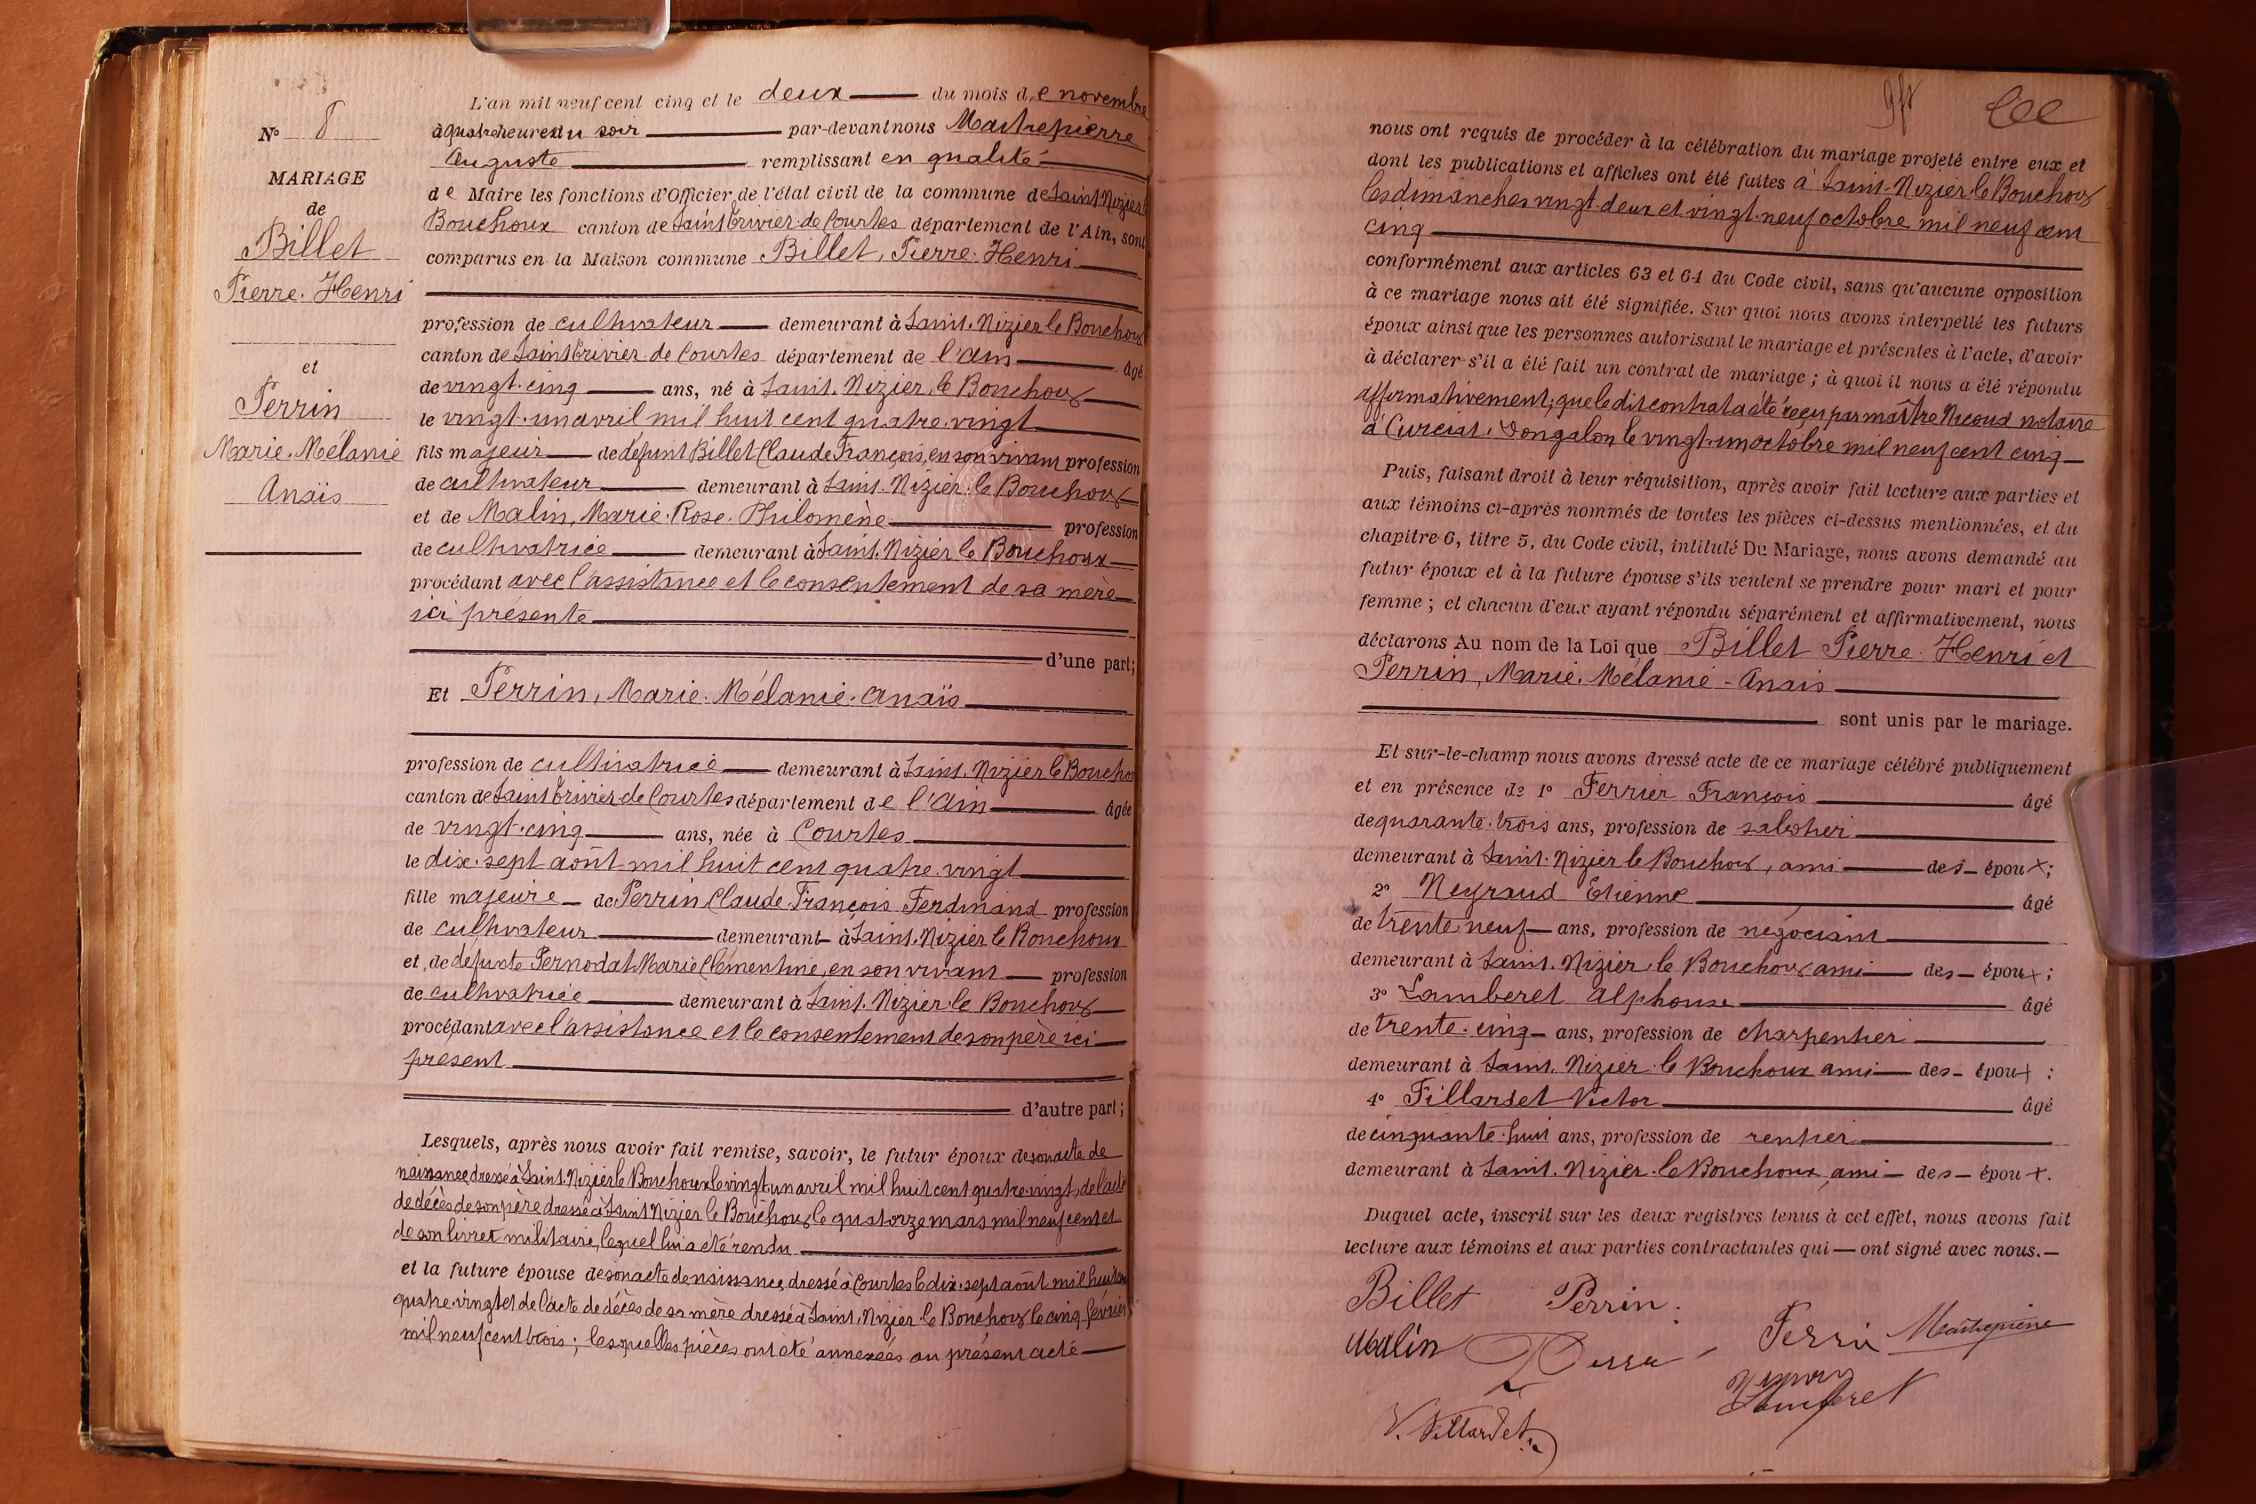 N° 8
MARIAGE
de
Billet
Pierre-Henri
et
Perrin
Marie-Mélanie
Anaïs
L'an mil neuf cent cinq et le deux du mois de novembre
à quatre heures du soir par-devant nous Maitrepierre
Auguste remplissant en qualité
de Maire les fonctions d'Officier de l'état civil de la commune de Saint-Nizier le
Bouchoux canton de Saint Trivier-de Courtes département de l'Ain, sont
comparus en la Maison commune Billet, Pierre-Henri
profession de cultivateur demeurant à Saint-Nizier le Bouchoux
canton de Saint Trivier-de Courtes département de l'Ain âgé
de vingt-cinq ans, né à Saint-Nizier-le Bouchoux
le vingt-un avril mil huit cent quatre-vingt
fils majeur de défunt Billet Claude François, en son vivant profession
de cultivateur demeurant à Saint-Nizier le Bouchoux
et de Malin, Marie-Rose-Philomène profession
de cultivatrice demeurant à Saint-Nizier le Bouchoux
procédant avec l'assistance et le consentement de sa mère
ici présente
d'une part;
Et Perrin, Marie-Mélanie-Anaïs
profession de cultivatrice demeurant à Saint-Nizier le Bouchoux
canton de Saint Trivier-de Courtes département de l'Ain âgée
de vingt-cinq ans, née à Courtes
le dix-sept août mil huit cent quatre-vingt
fille majeure de Perrin Claude François Ferdinand profession
de cultivateur demeurant à Saint-Nizier le Bouchoux
et de défunte Pernodat Marie Clémentine, en son vivant profession
de cultivatrice demeurant à Saint-Nizier-le Bouchoux
procédant avec l'assistance et le consentement de son père ici
présent
d'autre part;
Lesquels, après nous avoir fait remise, savoir, le futur époux de son acte de
naissance dressé à Saint-Nizier le Bouchoux le vingt un avril mil huit cent quatre-vingt, de l'acte
de décès de son père dressé à Saint Nizier le Bouchoux le quatorze mars mil neuf cent et
de son livret militaire, lequel lui a été rendu
et la future épouse de son acte de naissance, dressé à Courtes le dix-sept août mil huit cent
quatre-vingt et de l'acte de décès de sa mère dressé à Saint-Nizier-le Bouchoux le cinq février
mil neuf cent trois; lesquelles pièces ont été annexées au présent acte
nous ont requis de procéder à la célébration du mariage projeté entre eux et
dont les publications et affiches ont été faites à Saint-Nizier-le Bouchoux
les dimanches vingt-deux et vingt-neuf octobre mil neuf cent
cinq
conformément aux articles 63 et 64 du Code civil, sans qu'aucune opposition
à ce mariage nous ait été signifiée. Sur quoi nous avons interpellé les futurs
époux ainsi que les personnes autorisant le mariage et présentes à l'acte, d'avoir
à déclarer s'il a été fait un contrat de mariage; à quoi il nous a été répondu
affirmativement; que le dit contrat a été reçu par maître Nicoud notaire
à Curciat-Dongalon le vingt-un octobre mil neuf cent cinq
Puis, faisant droit à leur réquisition, après avoir fait lecture aux parties et
aux témoins ci-après nommés de toutes les pièces ci-dessus mentionnées, et du
chapitre 6, titre 5, du Code civil, intitulé Du Mariage, nous avons demandé au
futur époux et à la future épouse s'ils veulent se prendre pour mari et pour
femme; et chacun d'eux ayant répondu séparément et affirmativement, nous
déclarons Au nom de la Loi que Billet Pierre-Henri et
Perrin, Marie-Mélanie-Anaïs
sont unis par le mariage.
Et sur-le-champ nous avons dressé acte de ce mariage célébré publiquement
et en présence de 1° Ferrier François âgé
de quarante-trois ans, profession de sabotier
demeurant à Saint-Nizier le Bouchoux, ami des époux;
2° Neyraud Etienne âgé
de trente neuf ans, profession de négociant
demeurant à Saint-Nizier-le Bouchoux ami des époux;
3° Lamberet Alphonse âgé
de trente-cinq ans, profession de charpentier
demeurant à Saint-Nizier-le Bouchoux ami des époux;
4° Fillardet Victor âgé
de cinquante-huit ans, profession de rentier
demeurant à Saint-Nizier-le Bouchoux, ami des époux.
Duquel acte, inscrit sur les deux registres tenus à cet effet, nous avons fait
lecture aux témoins et aux parties contractantes qui ont signé avec nous.
Billet Perrin
Malin Perrin Maitrepierre
Lamberet
V. Fillardet